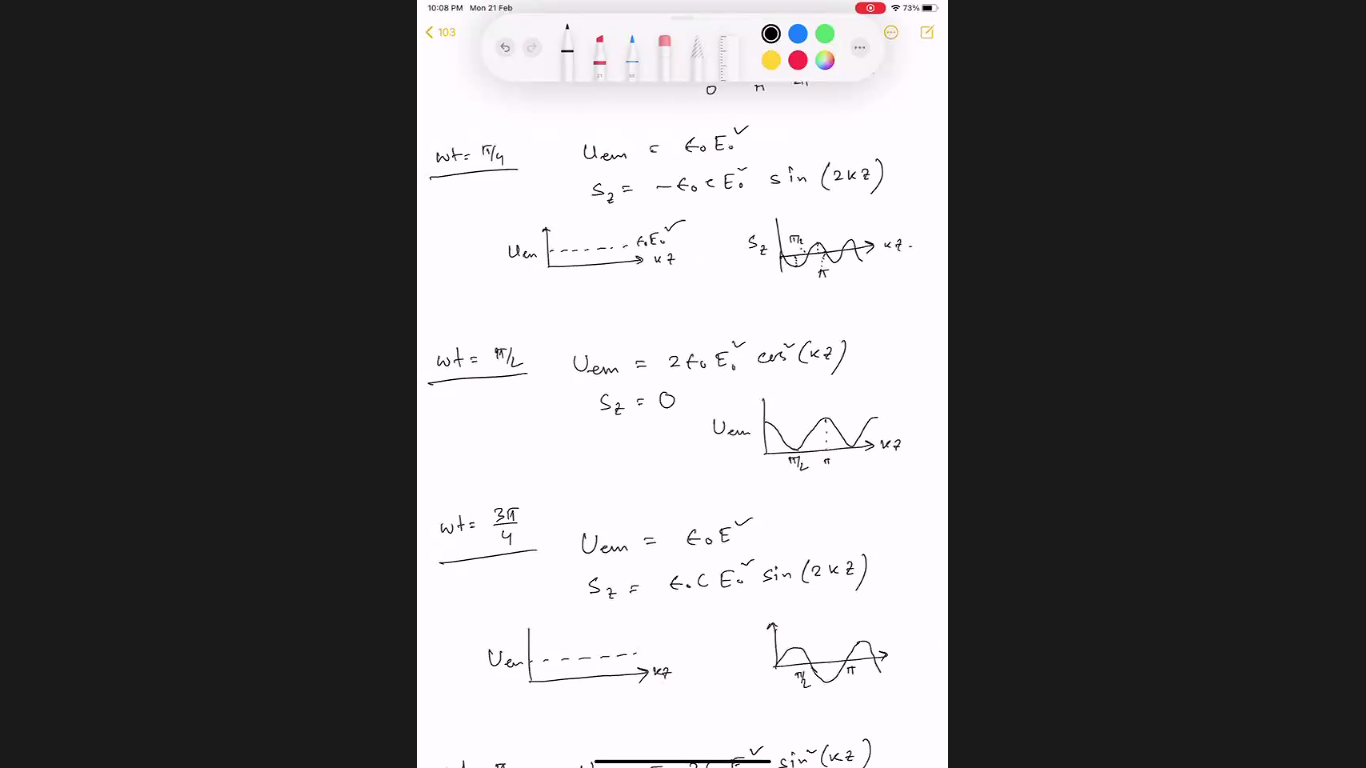 10:08 PM Mon 21 Feb
73%
103
0 π 2π
wt = π/4
Uem = ϵ₀E₀²
Sz = -ϵ₀cE₀² sin(2kz)
Uem ϵ₀E₀² kz
Sz π/2 π kz.
wt = π/2
Uem = 2ϵ₀E₀² cos²(kz)
Sz = 0
Uem π/2 π kz
wt = 3π/4
Uem = ϵ₀E²
Sz = ϵ₀cE₀² sin(2kz)
Uem kz
π/2 π
sin²(kz)